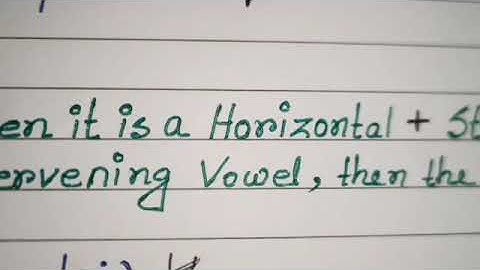 en it is a Horizontal + St
ervening Vowel, then the